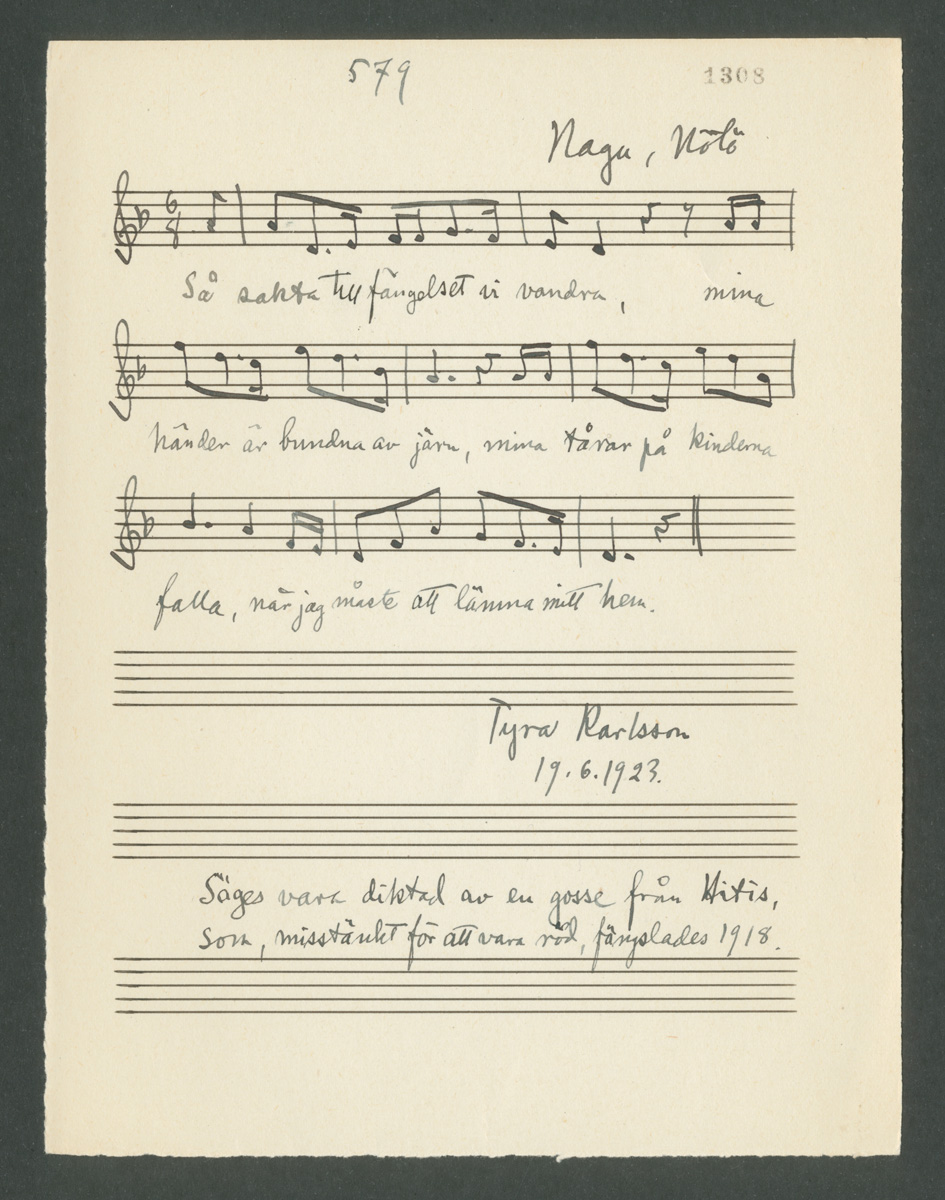 579
1308
Nagu, Nötö
6
8
Så sakta till fängelset vi vandra, mina
händer är bundna av järn, mina tårar på kinderna
falla, när jag måste att lämna mitt hem.
Tyra Karlsson
19.6.1923.
Säges vara diktad av en gosse från Hitis,
som, misstänkt för att vara röd, fängslades 1918.